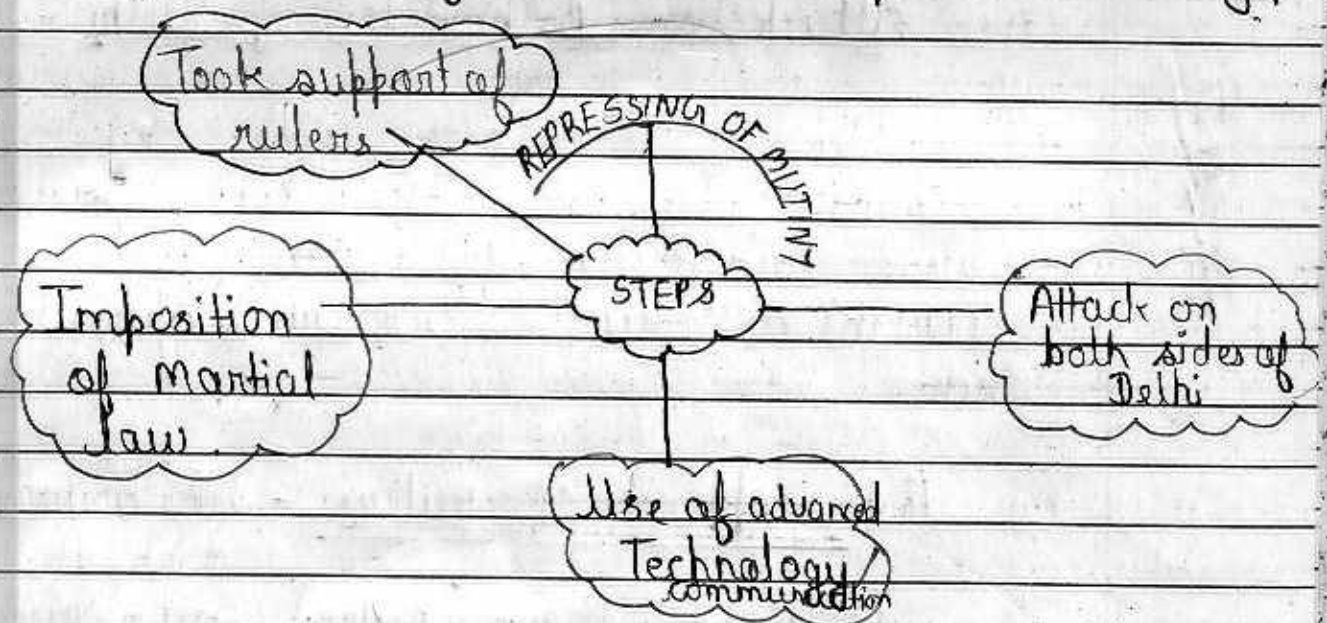 Took support of
rulers
REPRESSING OF MUTINY
STEPS
Imposition
of Martial
law
Attack on
both sides of
Delhi
Use of advanced
Technology/
communication